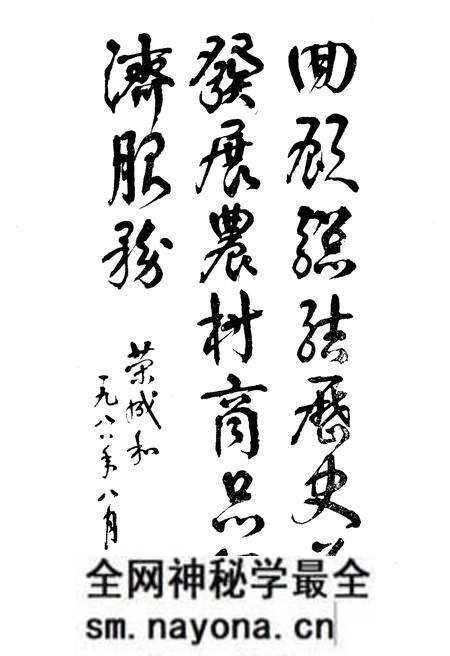 回顾總結歷史
發展農村商品
濟服務
荣城和
一九八八年八月
全网神秘学最全
sm.nayona.cn